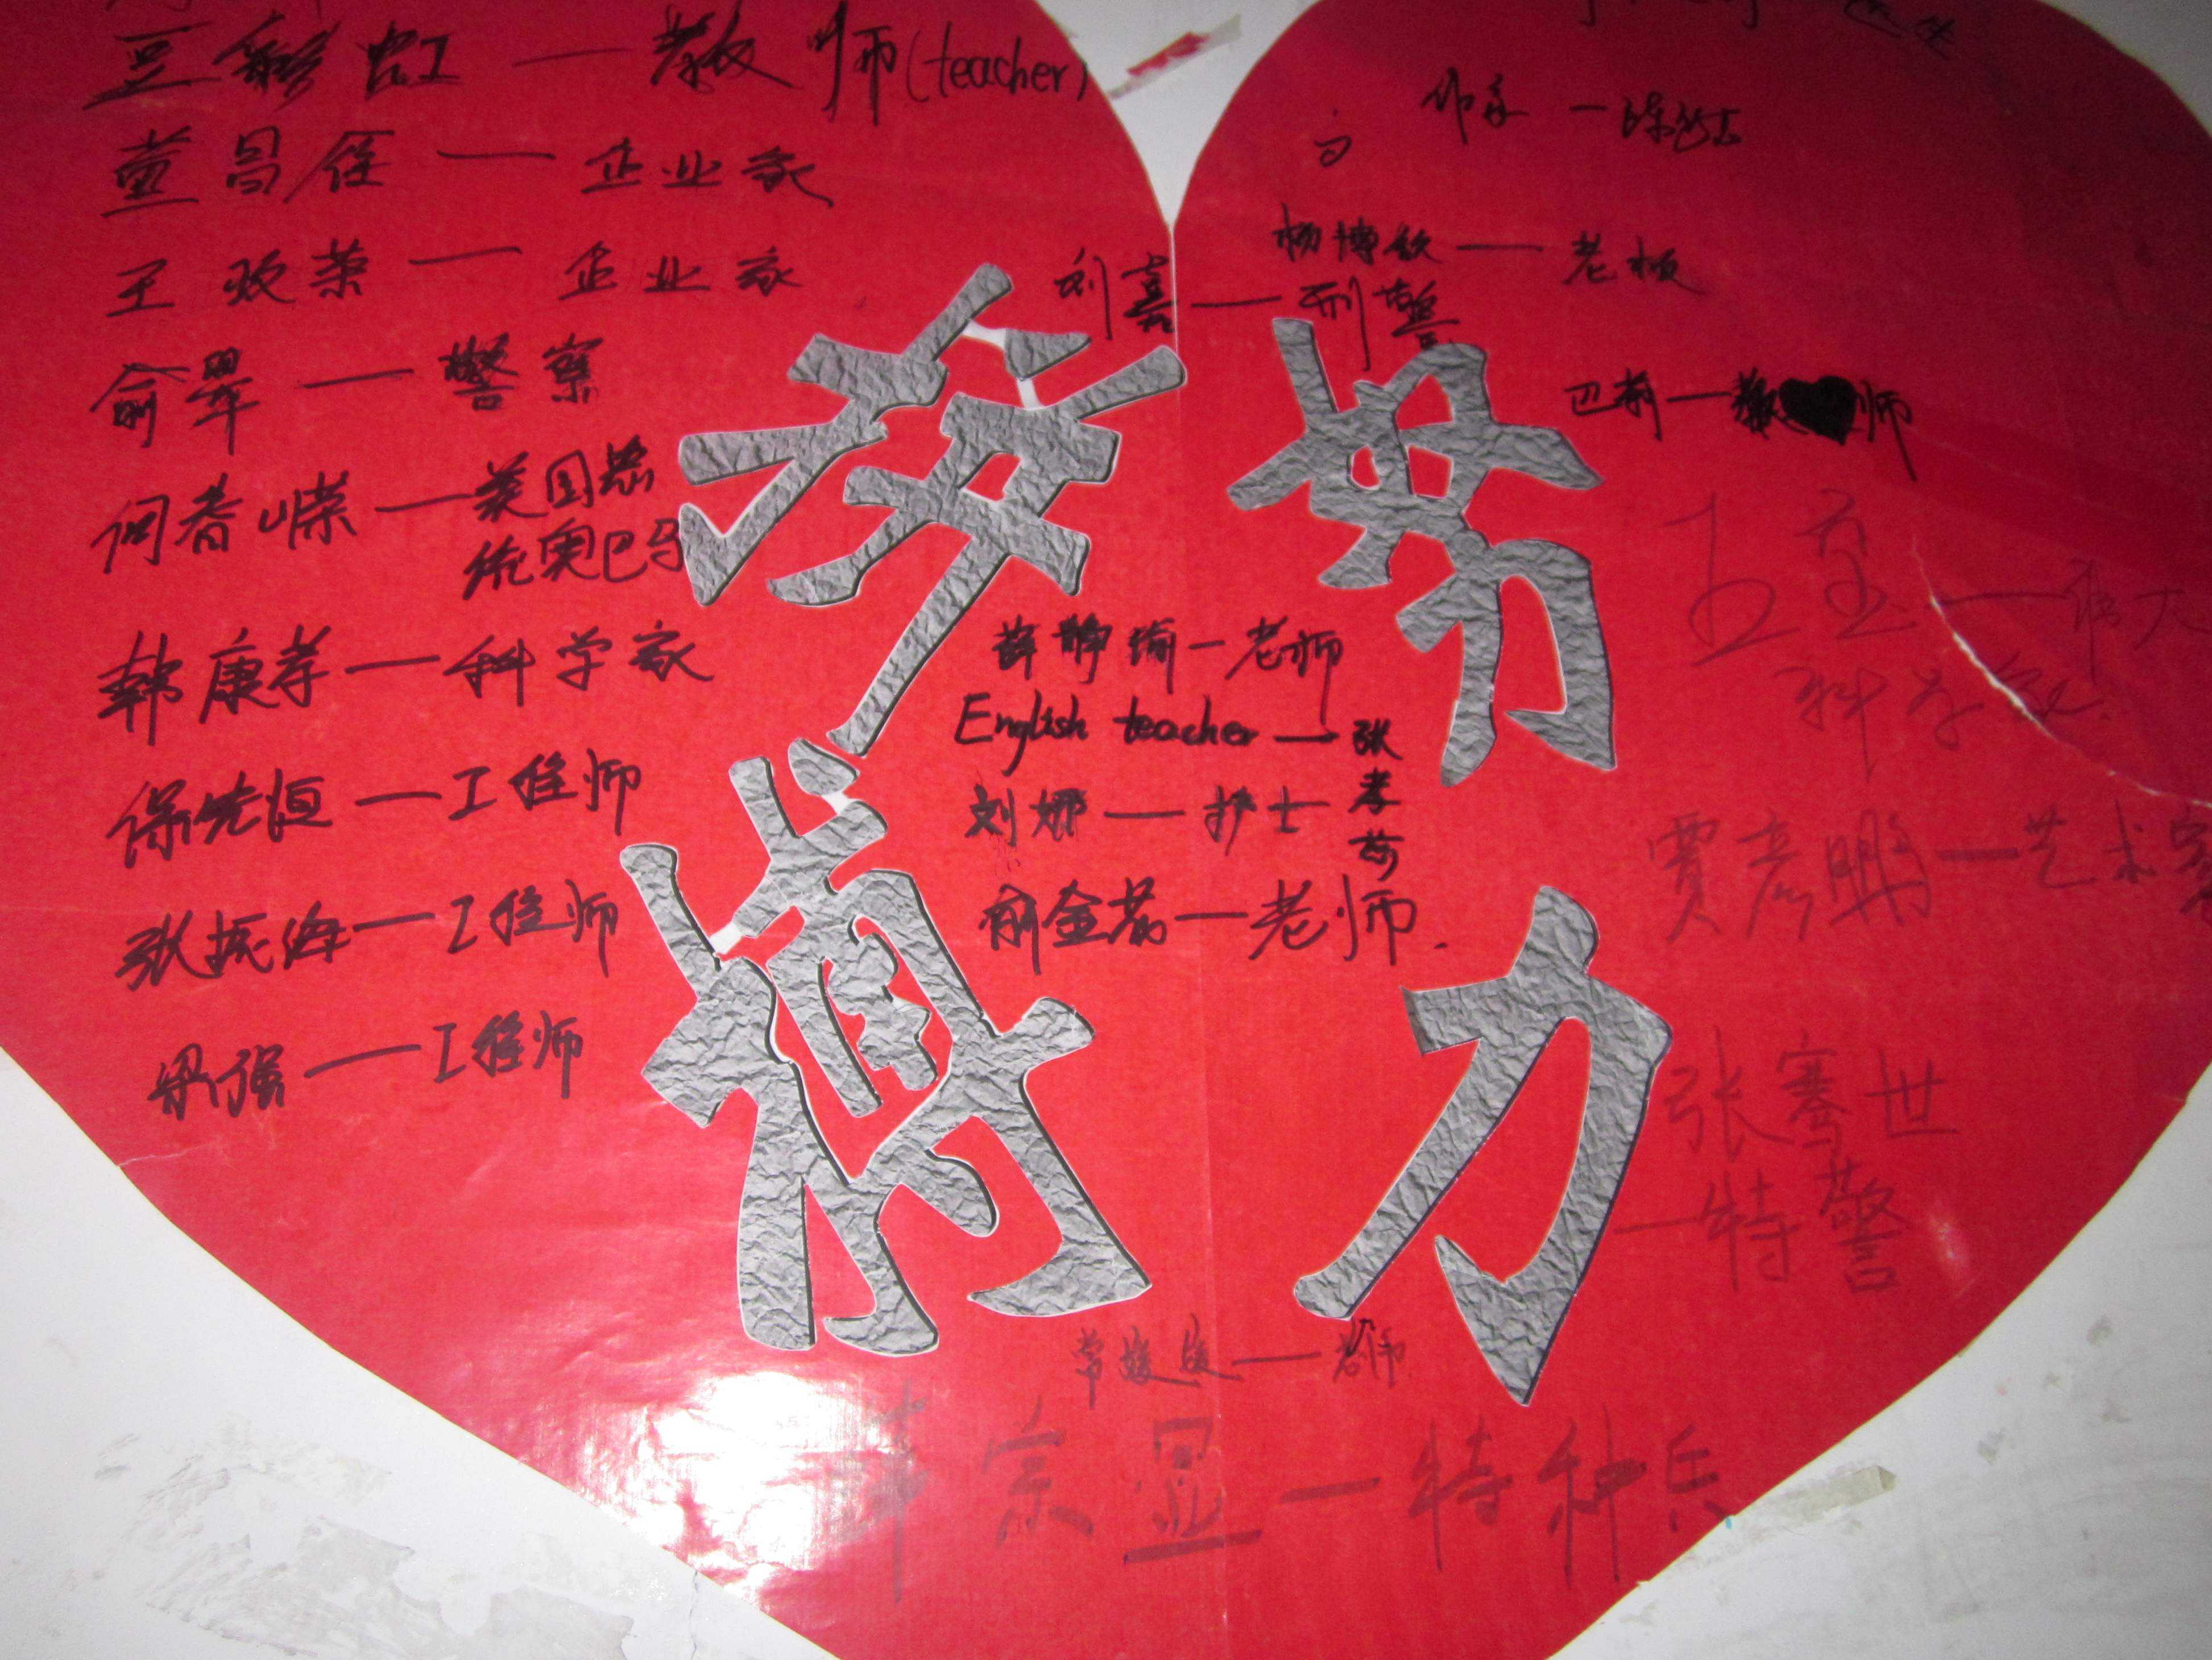 豆彩虹——教师(teacher)
董昌任——企业家
王欢荣——企业家
俞翠——警察
何春嵘——美国总
统奥巴马
韩康孝——科学家
保先恒——工程师
张振海——工程师
梁强——工程师
拼搏
努力
作家—
杨博钦——老板
刘嘉——刑警
巴莉—教师
薛静瑜—老师
English teacher——张孝荷
刘娜——护士
俞金花——老师.
——伟大
科学家
贾彦鹏——艺术家
张骞世
—特警
常媛媛——老师
宗显—特种兵